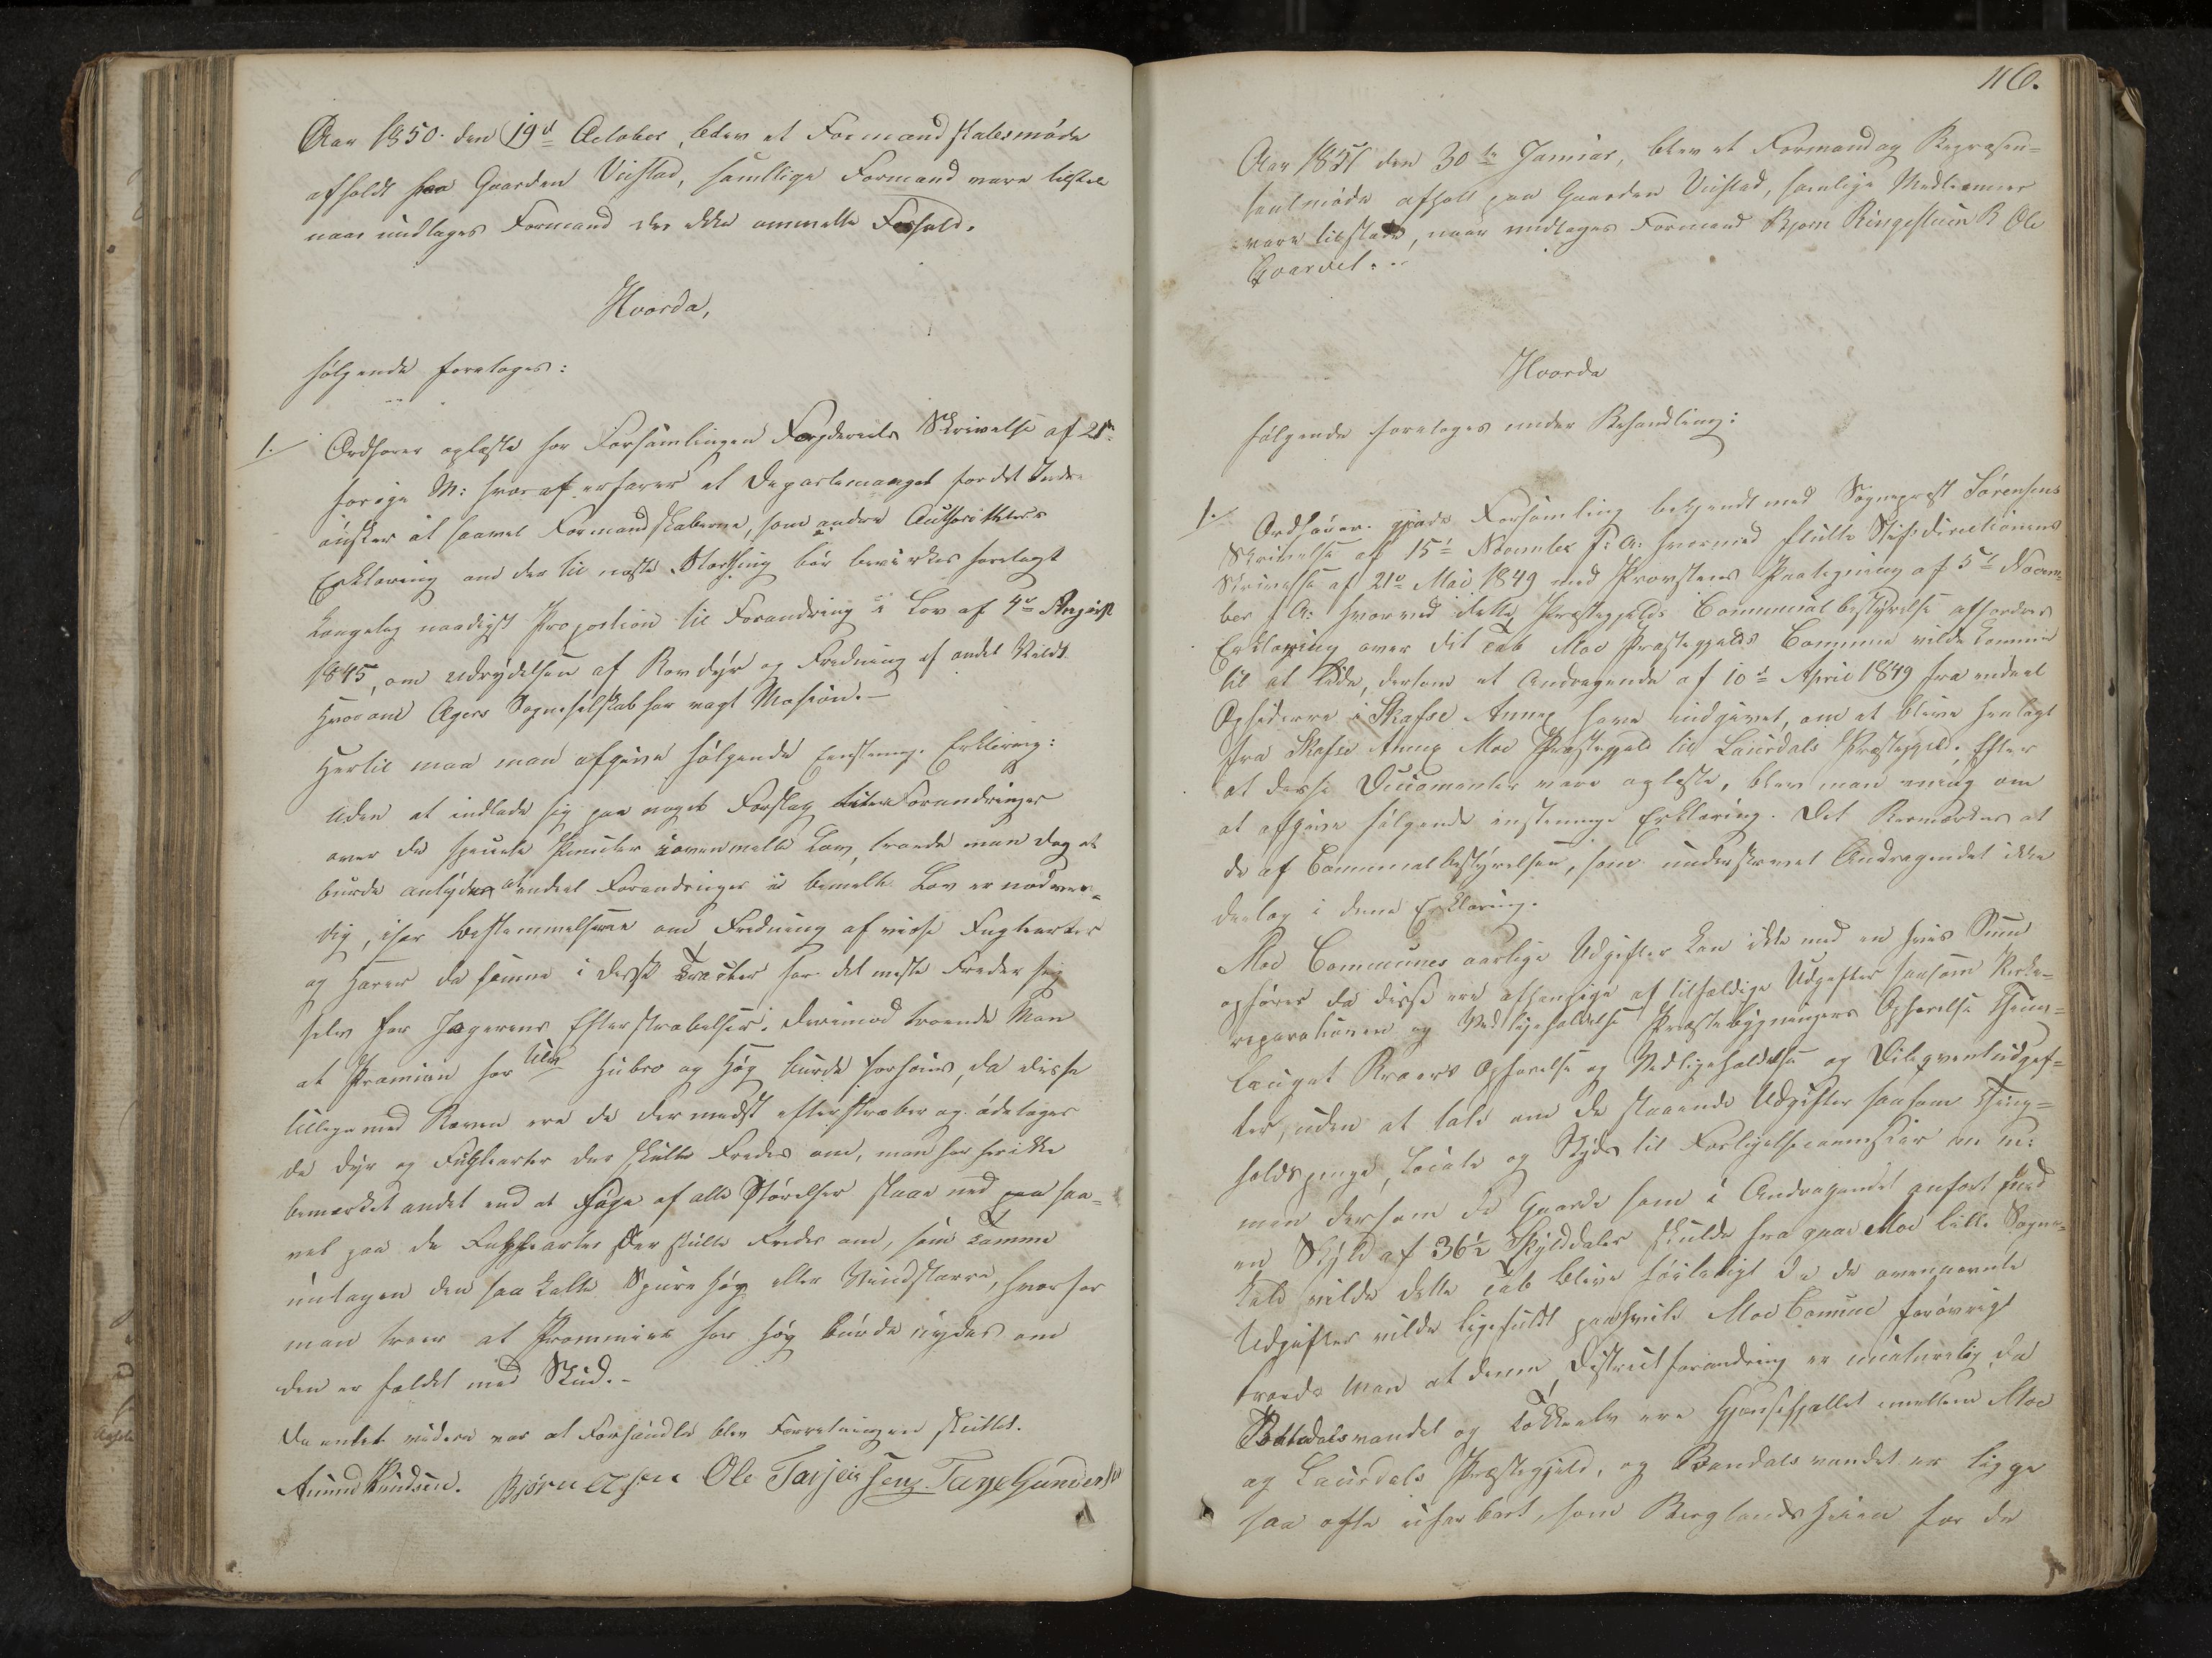 Aar 1850. den 19d October, blev et Formandskabsmøde
afholdt paa Gaarden Vistad, samtlige Formænd vare tilstæde
naar undtages Formand der ikke anmelte Forfald.
Hvorda,
følgende foretoges:
1. Ordfører oplæste for Forsamlingen Fogderiets Skrivelse af 21de
forige M: hvoraf erfares at Departemanget for det Indre
ønsker at saavel Formandskaberne, som andre Authoriteters
Erklæring om der til næste Storthing bør bevirkes forelagt
Kongelig naadigst Proposition til Forandring i Lov af 4de August
1845, om Udrydelsen af Rovdyr og Fredning af andet Vildt
Hvorom Agers Sogneselskab har vagt Mosion.-
Hertil maa man afgive følgende Eenstemig Erklæring:
Uden at indlade sig paa noget Forslag Forandringer
over de specielle Puncter i ovenmelte Lov, troede man dog at
burde antyde at endeel Forandringer i bemelte Lov er nødven-
dig, især bestemmelserne om Fredning af visse Fuglearter
og Harer da samme i disse Tracter for det meste Freder sig
selv for Jægerens Efterstræbelser. Derimod troende Man
at Præmien for Ulv Hubro og Høg burde forhøies, da disse
tillige med Ræven ere de der meest efterstræber og ødelægger
de dyr og Fuglearter der skulle Fredes om, man har her ikke
bemærket andet end at Høge af alle Størelser slaar ned paa saa-
vel paa de Fuglearter der skulle Fredes om, som Tamme
untagen den saa kalte Spurehøg eller Vindstarre, hvorfor
man troer at Præmmien for Høg burde nydes om
den er fældet med Skud.-
Da intet videre var at Forhandle blev Forretningen sluttet.
Amund Knudsen. Bjørn Olsen Ole Tarjeisen Tarje Gunders
116.
Aar 1851 den 30te Januar, blev et Formand og Repræsen-
tantmøde afholt paa Gaarden Vistad, samtlige Medlemmer
vare tilstæde, naar undtages Formand Bjørn Ringestuin R Ole
Hvorda
følgende foretoges under Behandling:
1. Ordfører gjorde Forsamling bekjendt med Sogneprest Sørensens
Skrivelse af 15d November f: A: hvormed fulte Stifsdirectionens
Skrivelse af 21d Mai 1849 med Provstens Paategning af 5d Novem-
ber f A: hvorved dette Præstegjelds Communalbestyrelse affordres
Erklæring over dit Tab Moe Præstegjelds Commune vilde komme
til at lide, dersom et Andragende af 10d April 1849 fra endeel
Opsiddere i Skafse Annex have indgivet, om at blive henlagt
fra Skafse Annex Moe Præstegjeld til Laurdals Præstegjeld. Efter
at disse Documenter vare oplæste, blev man enig om
at afgive følgende enstemige Erklæring. Det Bemærkes at
de af Communalbestyrelsen, som underskrevet Andragendet ikke
deeltog i denne Erklæring.
Moe Communes aarlige Udgifter kan ikke med en vis Sum
opføres da disse ere afhengige af tilfældige Udgifter saasom Kirke-
reparationen og Vedligeholdelse Præstebygningers Opførelse Thing-
lauget Broers Opførelse og Vedligeholdelse og Deliqventudgif-
ter, uden at tale om de staaende Udgifter saasom Thing-
holdspenge, Locale og Skyds til Forligelsecommissair m m:
men dersom de Gaarde som i Andragendet anført med
en Skyld af 36½ Skylddaler skulde fra gaae Moe lille Sogne-
kald vilde dette Tab blive føleligt da de ovennævnte
Udgifter vilde ligefuldt paahvile Moe Comune forøvrigt
troede Man at denne Districtforandring er unaturlig da
Botedalsvandet og Tokkeelv ere Grændseskjellet imellem Moe
og Laurdals Præstegjeld, og Bandaks vandet er ligge
saa ofte ufarbart, som Berglands heien for de